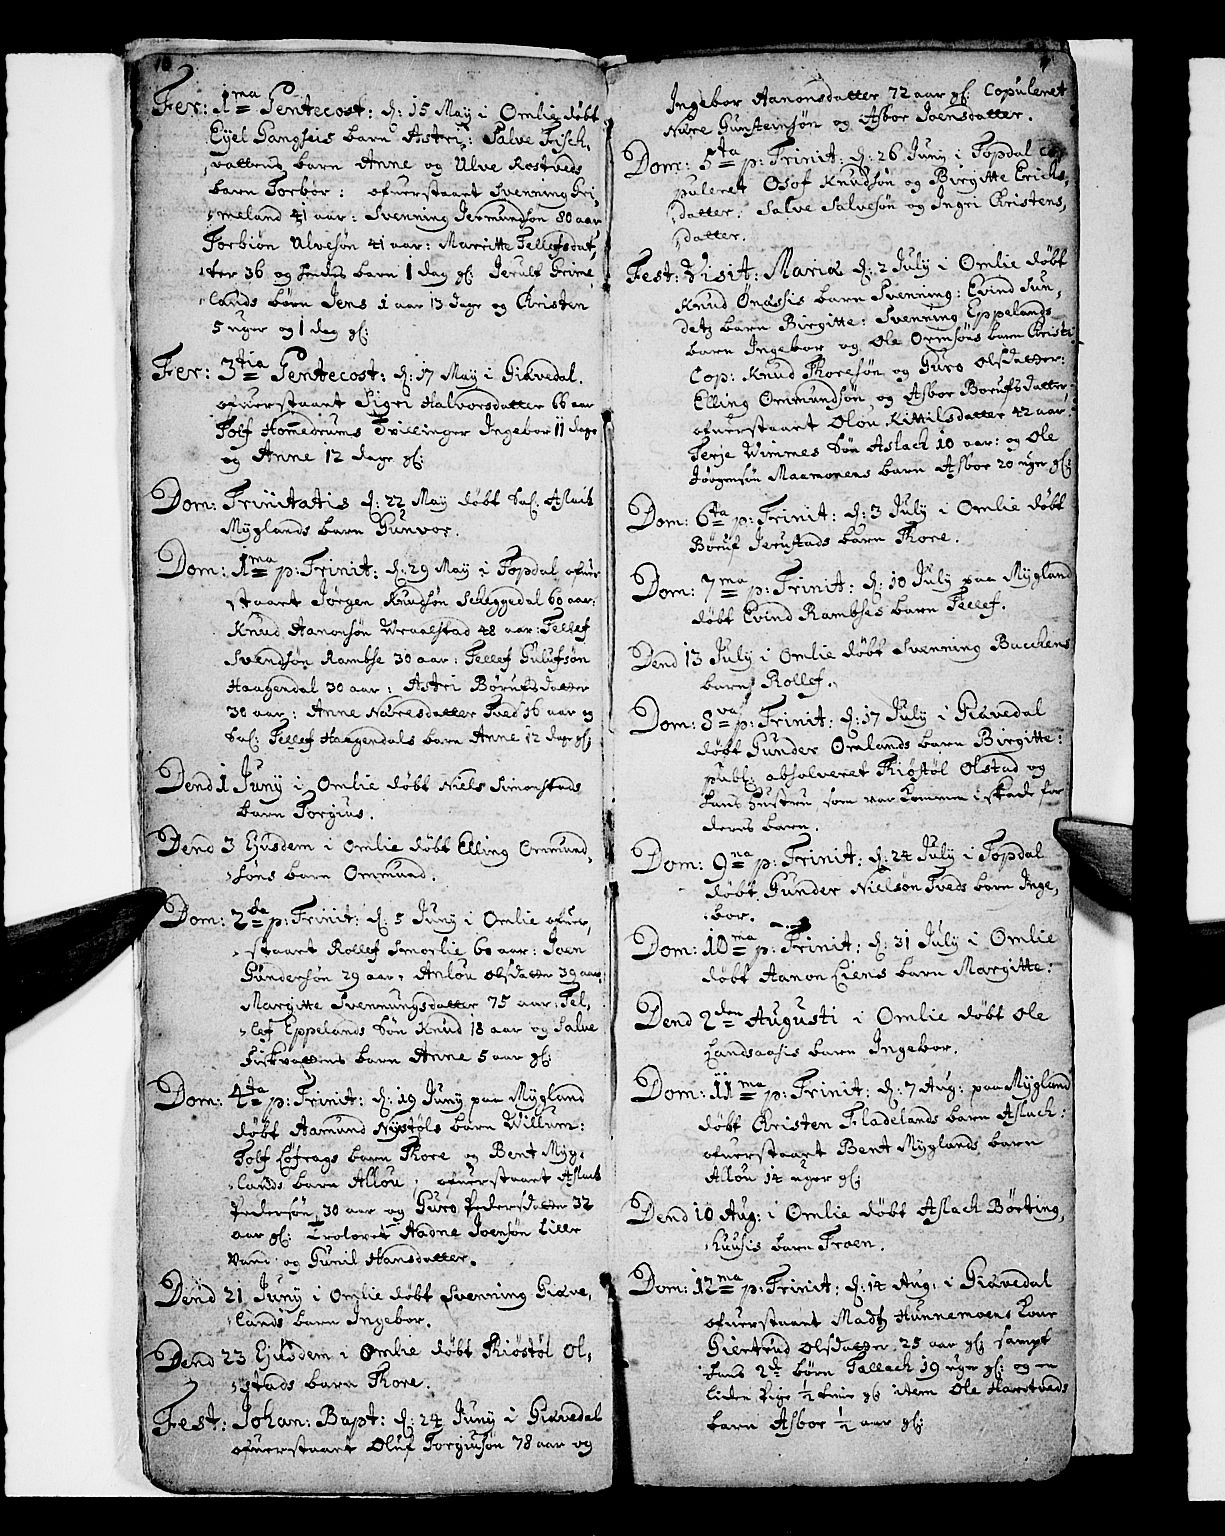 Fer: 1ma Pentecost: d: 15 May i Omlie døbt
Eyel Gangseis barn Astri: Salve Fisch,
,vattens barn Anne og Ulve Rostveds
barn Torbor: ofuerstaart Svenning Gri,
,meland 41 aar: Svenning Jermundsøn 80 aar
Torbiøn Ulvesøn 41 aar: Marritte Tellefsdat,
,ter 36 og barn 1 dag gl: Jerulf Grime,
,lands børn Jens 1 aar 13 dage og Christin
5 uger og 1 dag gl:
Fer: 3tia Pentecost: d: 17 May i Giævedal.
ofuerstaart Sigri Halvorsdatter 66 aar
Tolf Homedrums Tvillinger Ingebor 11 dage
og Anne 12 dage gl:
Dom: Trinitatis d: 22 May døbt Sal: Aslach
Myglands barn Gunvor.
Dom: 1ma p: Trinit: d: 29 May i Topdal ofuer
staart Jørgen Knudsøn Scheggedal 60 aar:
Knud Aanonsøn Wraalstad 48 aar: Tellef
Svendsøn Rambse 30 aar: Tellef Gulufsøn
Haagendal 30 aar: Astri Børufsdatter
30 aar: Anne Nåresdatter Tved 36 aar og
Sal: Tellef Haagendals barn Anne 12 dage gl:
Dend 1 Juny i Omlie døbt Niels Simonstads
barn Torgius.
Dend 3 Ejusdem i Omlie døbt Elling Ormund,
,søns barn Ommund.
Dom: 2da p: Trinit: d: 5 Juny i Omlie ofuer,
,staart Rollef Smorlie 60 aar: Joen
Gundersøn 29 aar, Anlou Olsdatter 39 aar:
Margitte Svennungsdatter 75 aar: Tel,
,lef Eppelands Søn Knud 18 aar og Salve
Fiskvattens barn Anne 5 aar gl:
Dom: 4ta p: Trinit: d: 19 Juny paa Mygland
døbt Aamund Nystøls barn Willum:
Tolf Løfrags barn Thore og Bent Myg,
,lands barn Allou, ofuerstaart Aslach
Pedersøn 30 aar og Guro Pedersdatter 32
aar gl: Trolovet Aadne Joensøn Lille
Vand og Gunil Hansdatter.
Dend 21 Juny i Omlie døbt Svenning Giæve,
,lands barn Ingebor.
Dend 23 Ejusdem i Omlie døbt Kiøstøl Ol,
,stads barn Thore.
Fest: Johan: Bapt: d: 24 Juny i Giævedal
ofuerstaart Oluf Torgiusøn 78 aar og
Ingebor Aanonsdatter 72 aar gl: Copuleret
Nåre Gunsteinsøn og Asbor Joensdatter.
Dom: 5ta p: Trinit: d: 26 Juny i Topdal co,
puleret Osof Knudsøn og Birgitte Erichs,
,datter: Salve Salvesøn og Ingri Christens,
,datter.
Fest: Visit: Mariæ d: 2 July i Omlie døbt
Knud barn Svenning: Evind Sun,
detz barn Birgitte: Svenning Eppelands
barn Ingebor og Ole Ormsøns barn Christi
Cop: Knud Thoresøn og Guro Olsdatter:
Elling Ommundsøn og Asbor Børufsdatter,
ofuerstaart Olou Kittilsdatter 42 aar,
Terje Wimmes Søn Aslach 10 aar: og Ole
Jørgensøn Maamonens barn Asbor 20 uger gl:
Dom: 6ta p: Trinit: d: 3 July i Omlie døbt
Børuf Jerustads barn Thore.
Dom: 7ma p: Trinit: d: 10 July paa Mygland
døbt Evind Rambses barn Tellef.
Dend 13 July i Omlie døbt Svenning Bacchens
barn Rollef.
Dom: 8va p: Trinit: d: 17 July i Giævedal
døbt Gunder Omlands barn Birgitte:
publ: absolveret Kiøstøl Olstad og
hans Hustru som var kommen i skade for
deres barn.
Dom: 9na p: Trinit: d: 24 July i Topdal
døbt Gunder Nielsøn Tveds barn Inge,
,bor.
Dom: 10ma p: Trinit: d: 31 July i Omlie
døbt Aanon Liens barn Margitte.
Dend 2den Augusti i Omlie døbt Ole
Landsaasis barn Ingebor.
Dom: 11ma p: Trinit: d: 7 Aug: paa Mygland
døbt Christen Fladelands barn Aslach:
ofuerstaart Bent Myglands barn
Allou 14 uger gl:
Dend 10 Aug: i Omlie døbt Aslach Børting,
,huusis barn Troen.
Dom: 12ma p: Trinit: d: 14 Aug: i Giævedal
ofuerstaart Madtz Hunnemoens Kone
Giertrud Olsdatter 25 aar gl: sampt
hans 2de børn Tallach 19 uger gl: og en
liden Pige 1/2 time gl: item Ole Harstveds
barn Asbor 1/2 aar gl: